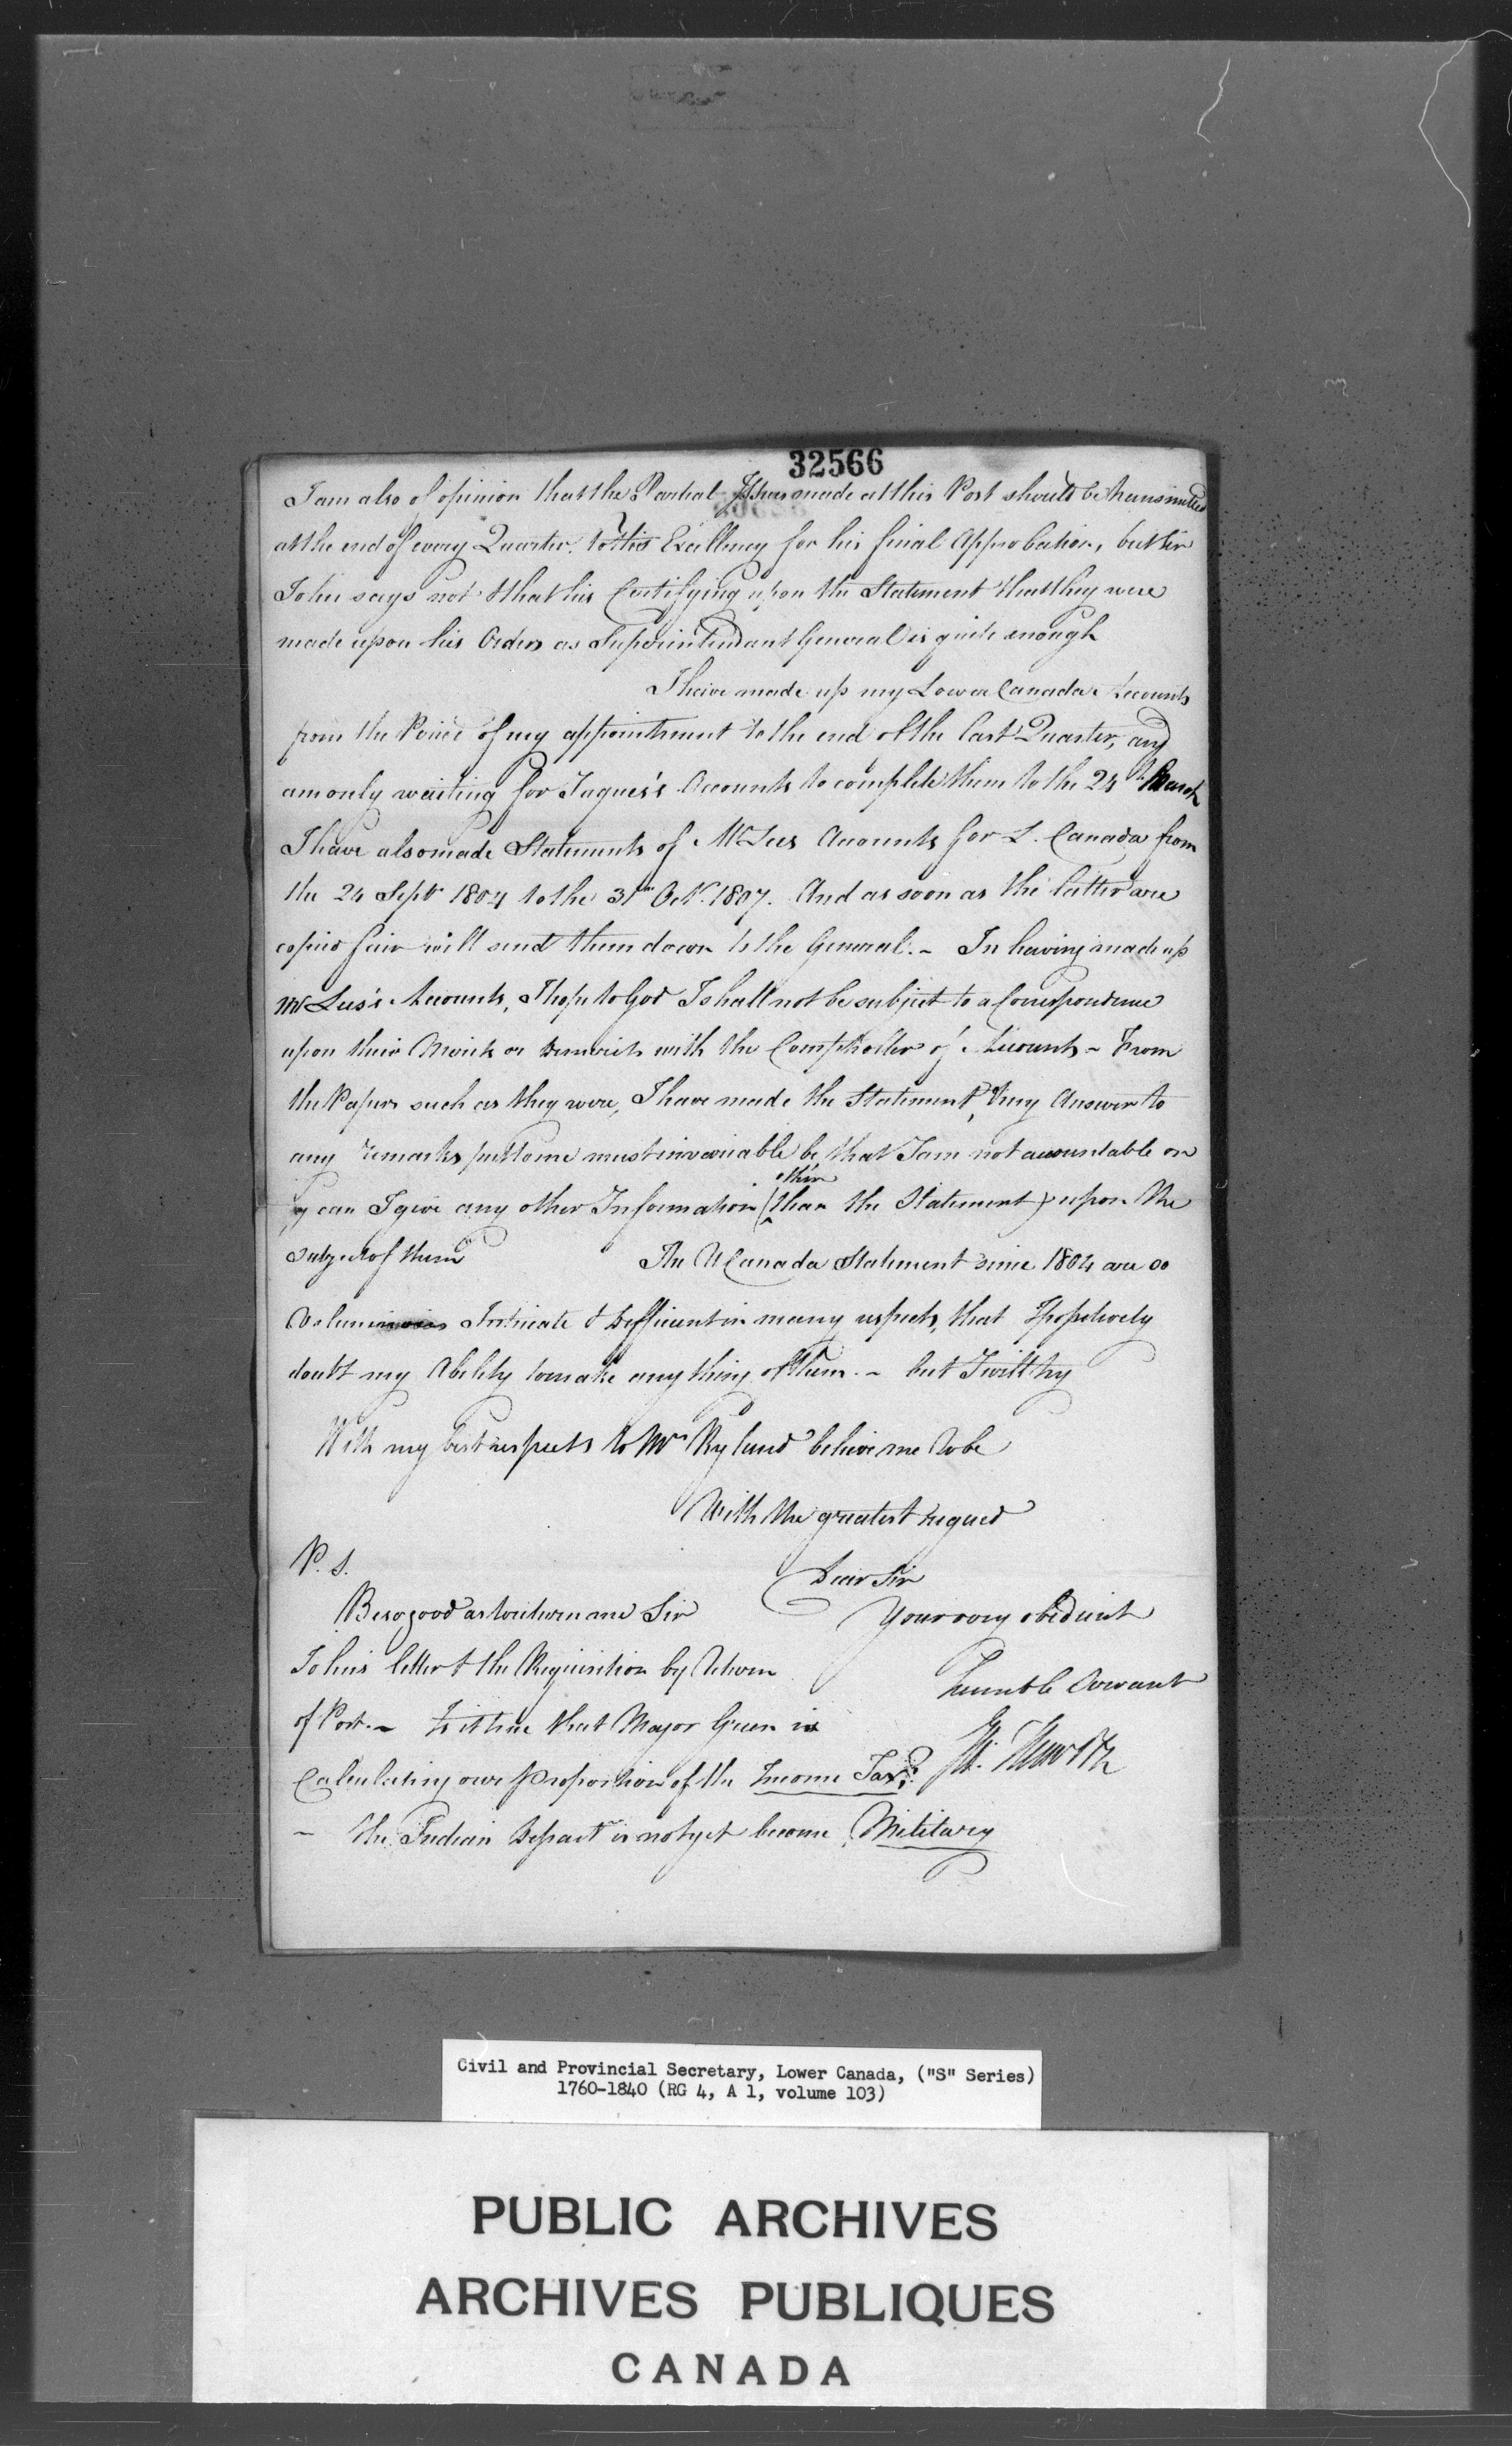 32566
I am also of opinion that the Partial Issues made at this Post should be transmitted
at the end of every Quarter, to His Excellency for his final Approbation, but Sir
John says not & that his Certifying upon the Statement that they were
made upon his Orders as Superintendant General is quite enough
I have made up my Lower Canada Accounts
from the Period of my appointment to the end of the last Quarter, and
am only waiting for Jaques's Accounts to complete them to the 24th March
I have also made Statements of Mr Lees Accounts for L. Canada from
the 24 Sept 1804 to the 31st Oct. 1807. And as soon as the latter are
copied fair will send them down to the General. - In having made up
Mr Lees's Accounts, I hope to God I shall not be subject to a Correspondence
upon their Merits or Demerits with the Comptroller of Accounts - From
the Papers such as they were, I have made the Statement, & my Answer to
any remarks put to me must invariable be that I am not accountable or
can I give any other Information (than the Statement) upon the
other
subject of them
The U Canada Statement since 1804 are so
Voluminous Intricate & Difficient in many respects, that I positively
doubt my Ability to make any thing of them. - but I will try
With my best respects to Mrs Ryland believe me to be
With the greatest regard
P. S.
Dear Sir
Be so good as to return me Sir
Your very obedient
John's letter & the Requisition by return
humble Servant
of Post. - Is it true that Major Green is
Calculating our Proportion of the Income Tax?
- the Indian Depart is not yet become Military
Civil and Provincial Secretary, Lower Canada, ("S" Series)
1760-1840 (RG 4, A 1, volume 103)
PUBLIC ARCHIVES
ARCHIVES PUBLIQUES
CANADA